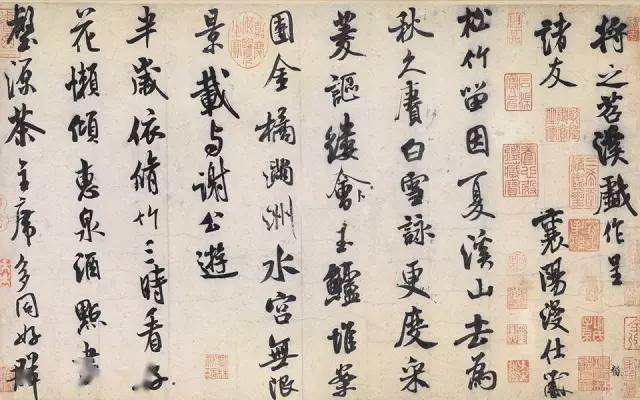 將之苕溪戲作呈
諸友 襄陽漫仕黻
松竹留因夏溪山去為
秋久賡白雪詠更度采
菱謳縷會玉鱸堆案
團金橘滿洲水宮無限
景載与謝公遊
半歲依脩竹三時看好
花懶傾惠泉酒點盡
壑源茶主席多同好群